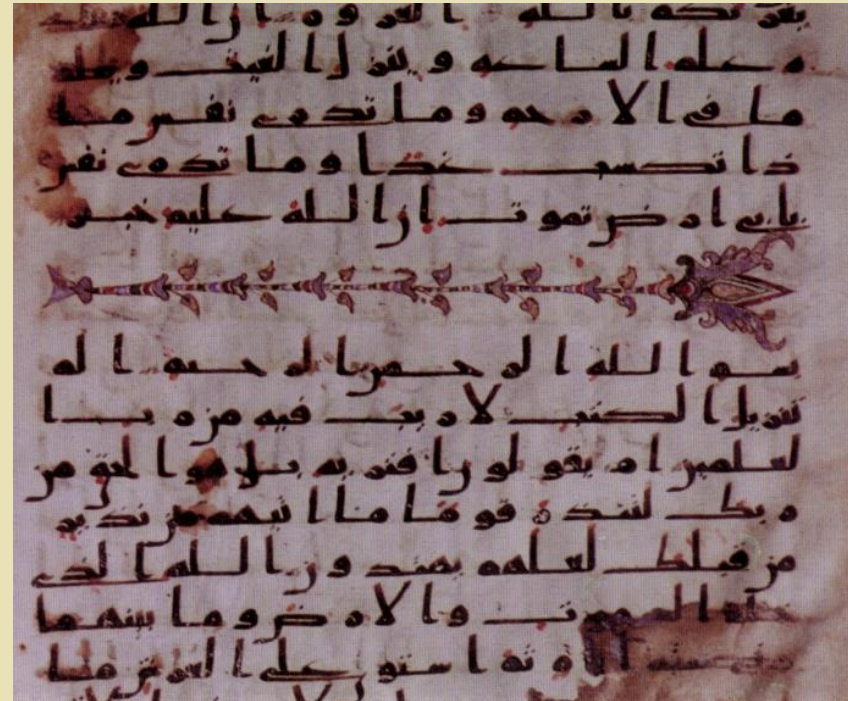 يغرنكم بالله الغرور ان الله عند
ه علم الساعه وينزل الغيث ويعلم
ما في الارحام وما تدري نفس ما
ذا تكسب غدا وما تدري نفس
باي ارض تموت ان الله عليم خبير
بسم الله الرحمن الرحيم الم
تنزيل الكتب لا ريب فيه من رب ا
لعلمين ام يقولون افتريه بل هو الحق من
ربك لتنذر قوما ما اتيهم من نذير
من قبلك لعلهم يهتدون الله الذي
خلق السموت والارض وما بينهما
في ستة ايام ثم استوى على العرش ما